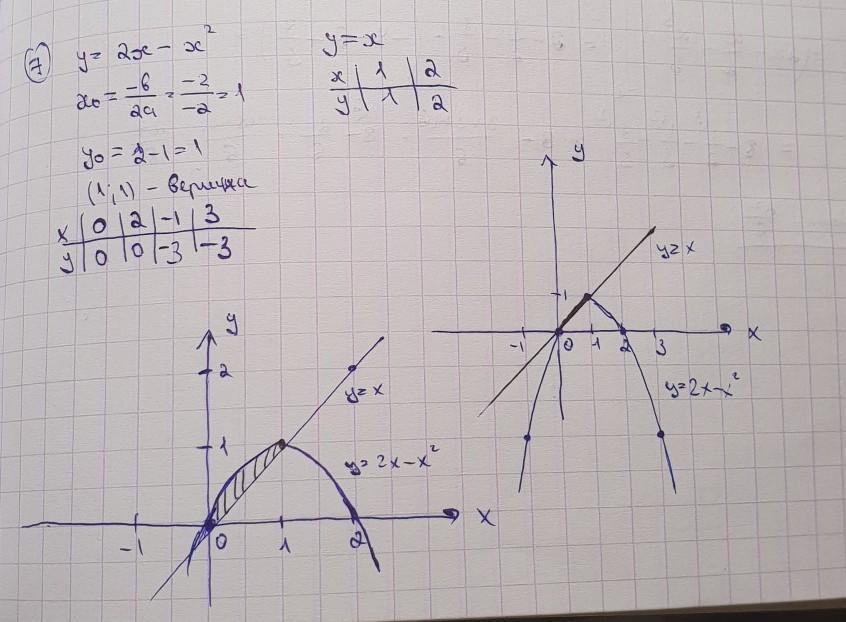 7
y = 2x - x²
x₀ = -b/2a = -2/-2 = 1
y₀ = 2-1 = 1
(1;1) - вершина
x | 0 | 2 | -1 | 3
y | 0 | 0 | -3 | -3
y = x
x | 1 | 2
y | 1 | 2
y
1
y = x
-1 0 1 2 3 x
y = 2x - x²
y
2
y = x
1
y = 2x - x²
-1 0 1 2 x